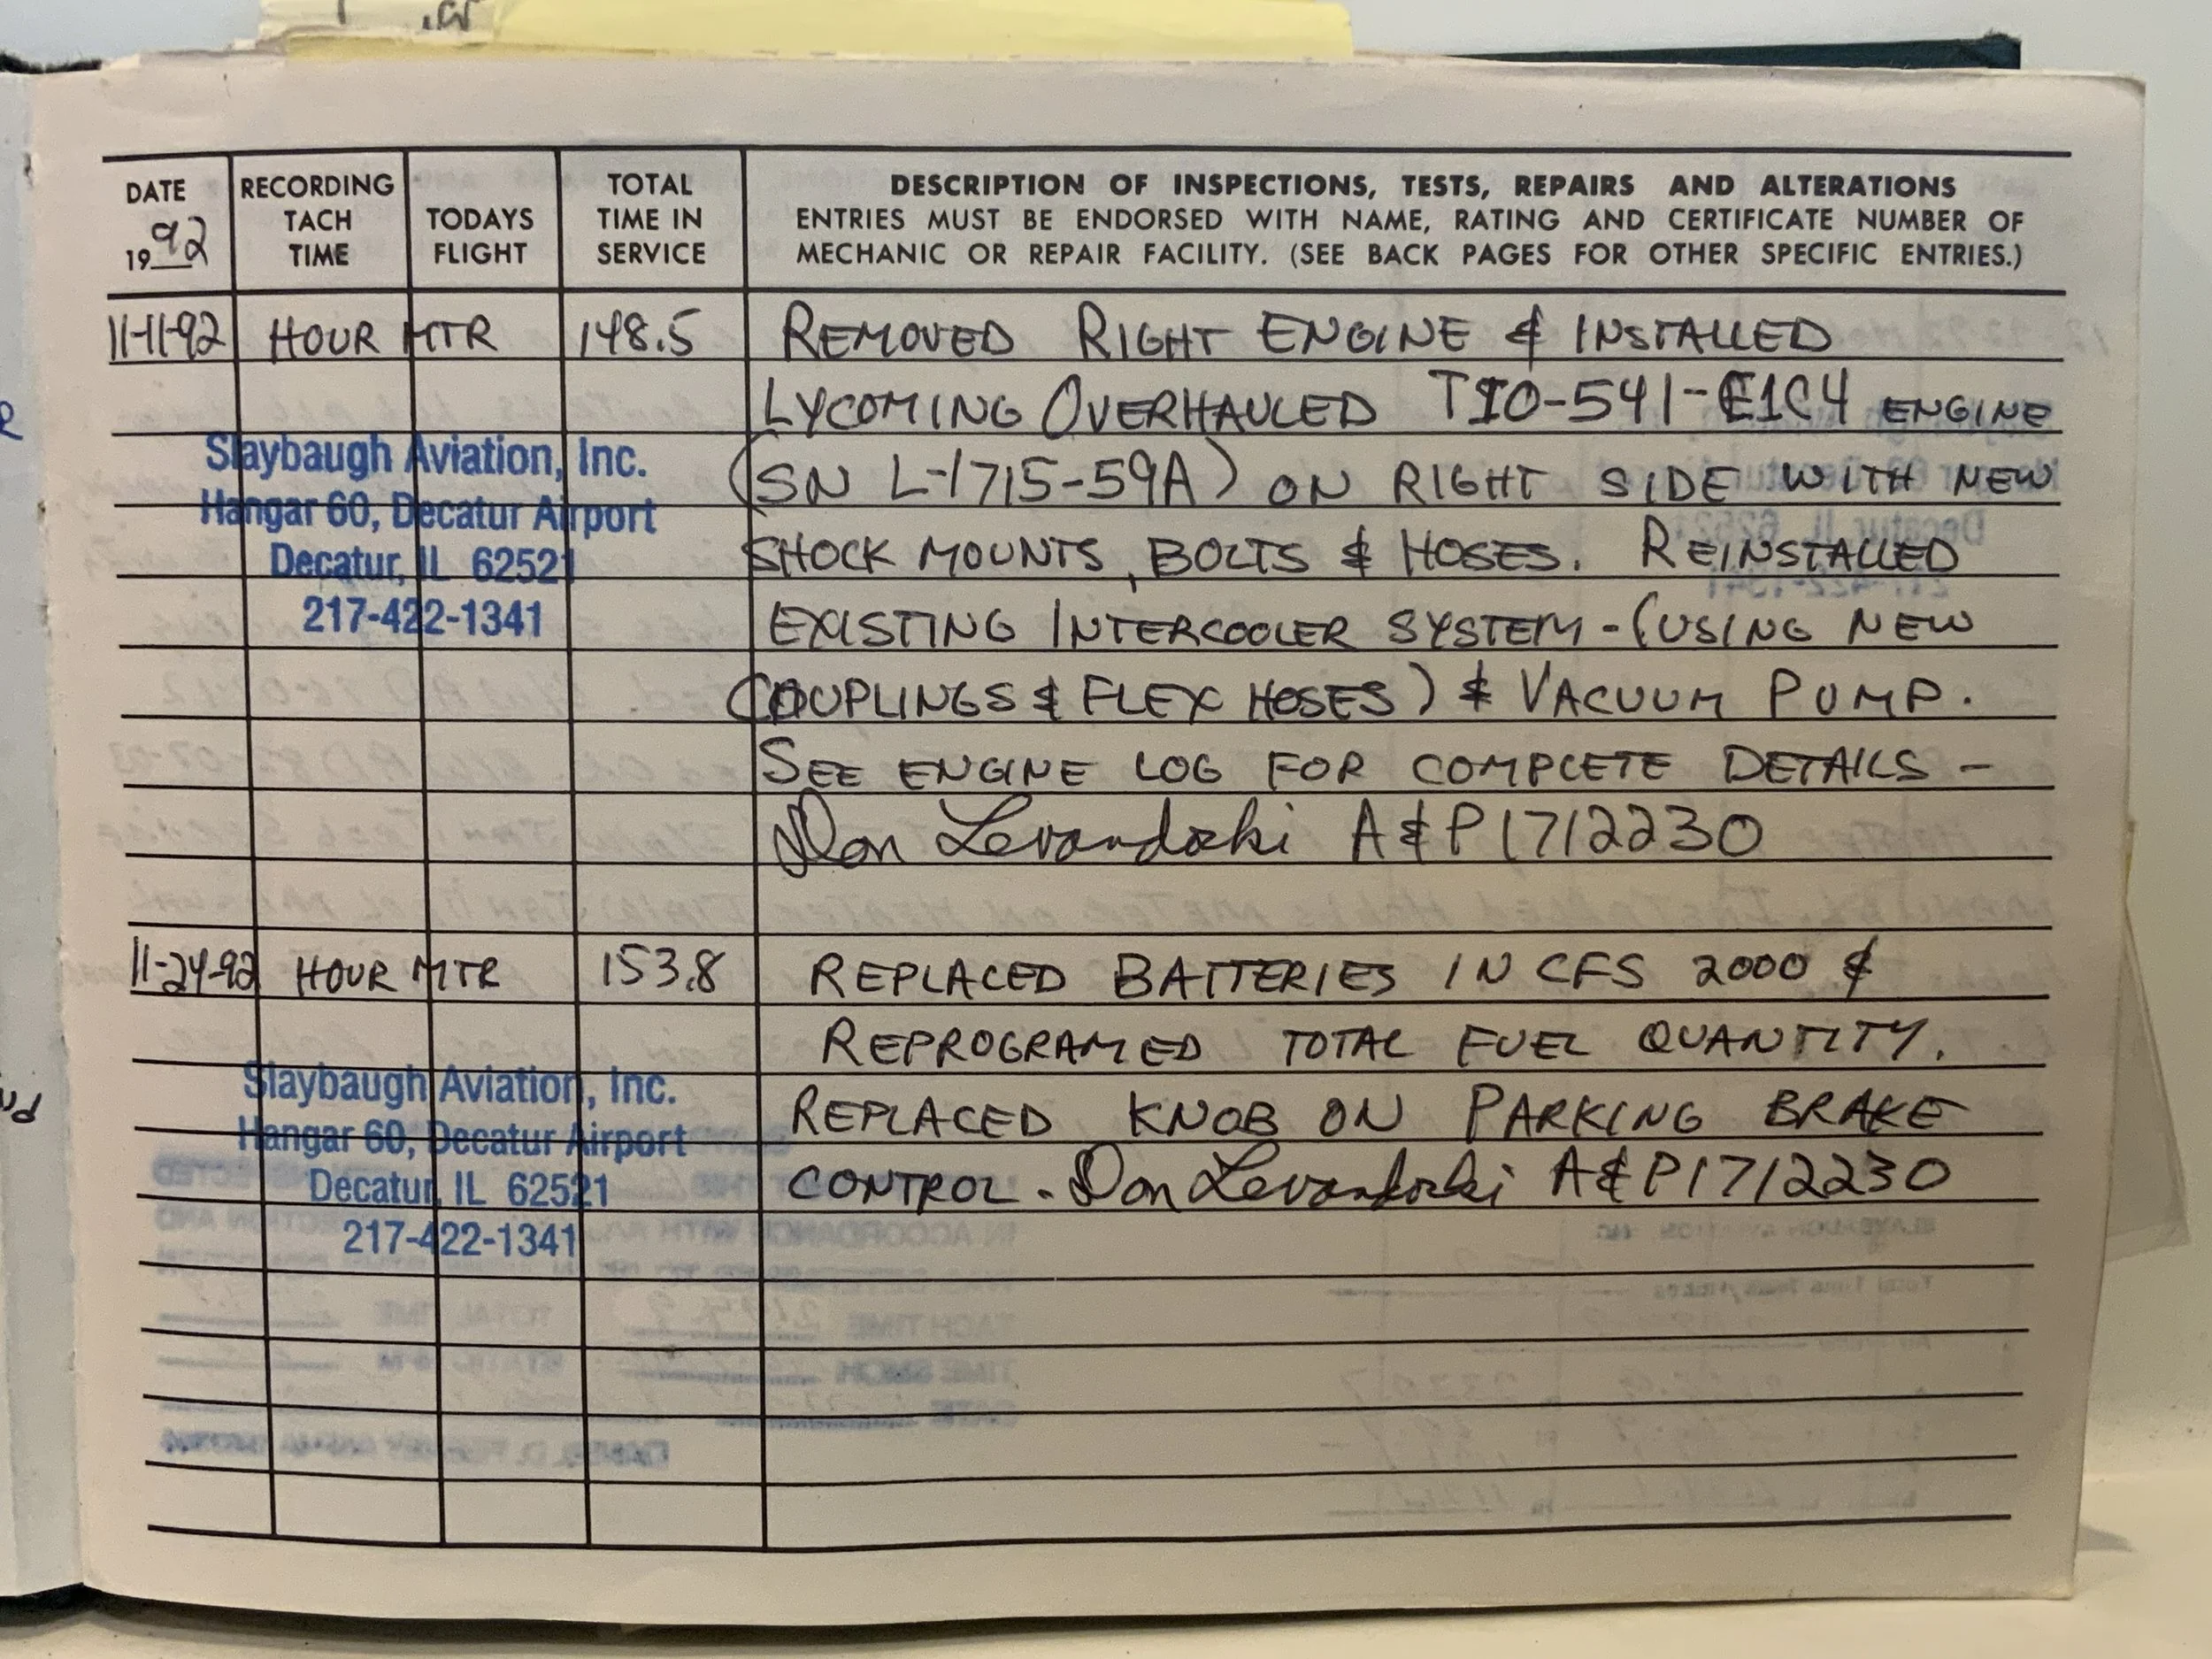 DATE
1992
RECORDING
TACH
TIME
TODAYS
FLIGHT
TOTAL
TIME IN
SERVICE
DESCRIPTION OF INSPECTIONS, TESTS, REPAIRS AND ALTERATIONS
ENTRIES MUST BE ENDORSED WITH NAME, RATING AND CERTIFICATE NUMBER OF
MECHANIC OR REPAIR FACILITY. (SEE BACK PAGES FOR OTHER SPECIFIC ENTRIES.)
11-11-92 HOUR MTR 148.5 REMOVED RIGHT ENGINE & INSTALLED
LYCOMING OVERHAULED TIO-541-E1C4 ENGINE
(SN L-1715-59A) ON RIGHT SIDE WITH NEW
SHOCK MOUNTS, BOLTS & HOSES. REINSTALLED
EXISTING INTERCOOLER SYSTEM - (USING NEW
COUPLINGS & FLEX HOSES) & VACUUM PUMP.
SEE ENGINE LOG FOR COMPLETE DETAILS -
Don Levandoski A&P 1712230
Slaybaugh Aviation, Inc.
Hangar 60, Decatur Airport
Decatur, IL 62521
217-422-1341
11-24-92 HOUR MTR 153.8 REPLACED BATTERIES IN CFS 2000 &
REPROGRAMED TOTAL FUEL QUANTITY.
REPLACED KNOB ON PARKING BRAKE
CONTROL. Don Levandoski A&P 1712230
Slaybaugh Aviation, Inc.
Hangar 60, Decatur Airport
Decatur, IL 62521
217-422-1341